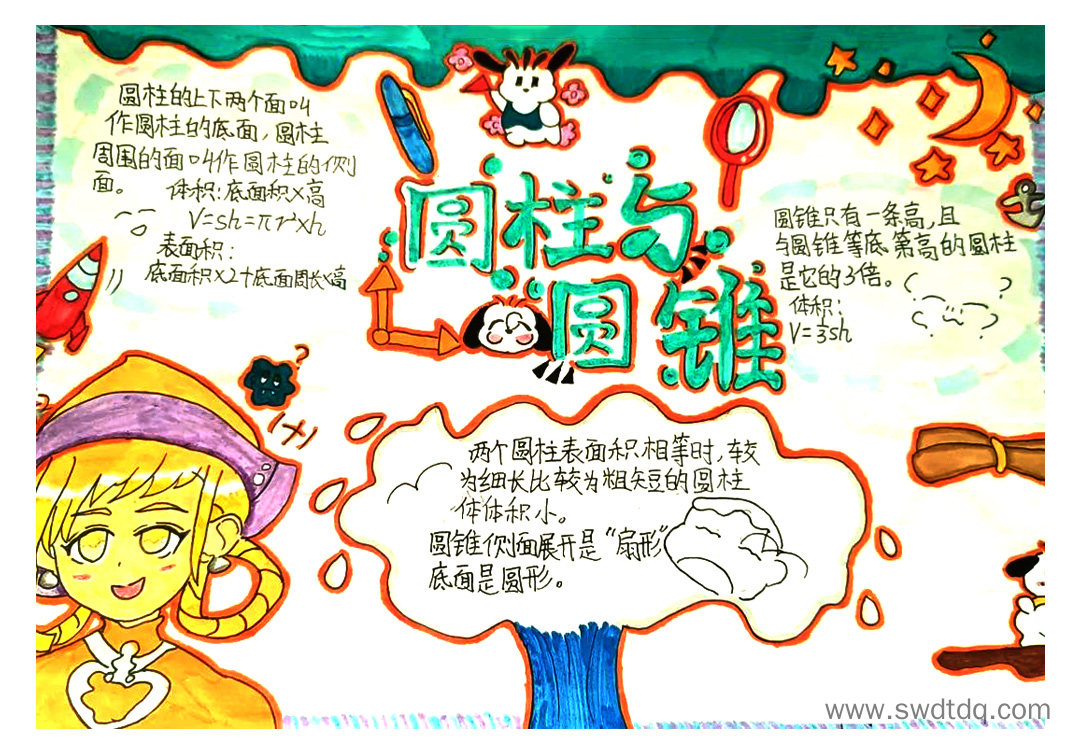 圆柱的上下两个面叫
作圆柱的底面，圆柱
周围的面叫作圆柱的侧
面。
体积：底面积×高
V=sh=πr²×h
表面积：
底面积×2+底面周长×高
圆柱与
圆锥
圆锥只有一条高，且
与圆锥等底等高的圆柱
是它的3倍。
体积：
V=⅓sh
?
两个圆柱表面积相等时，较
为细长比较为粗短的圆柱
体体积小。
圆锥侧面展开是“扇形”
底面是圆形。
www.swdtdq.com